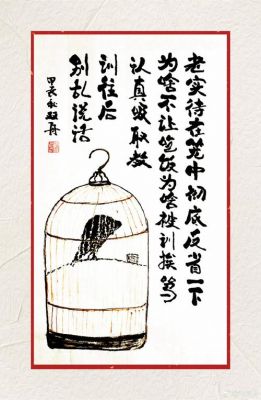 老实待在笼中彻底反省一下
为啥不让吃饭为啥挨训挨骂
认真吸取教
训往后
别乱说话
甲辰秋